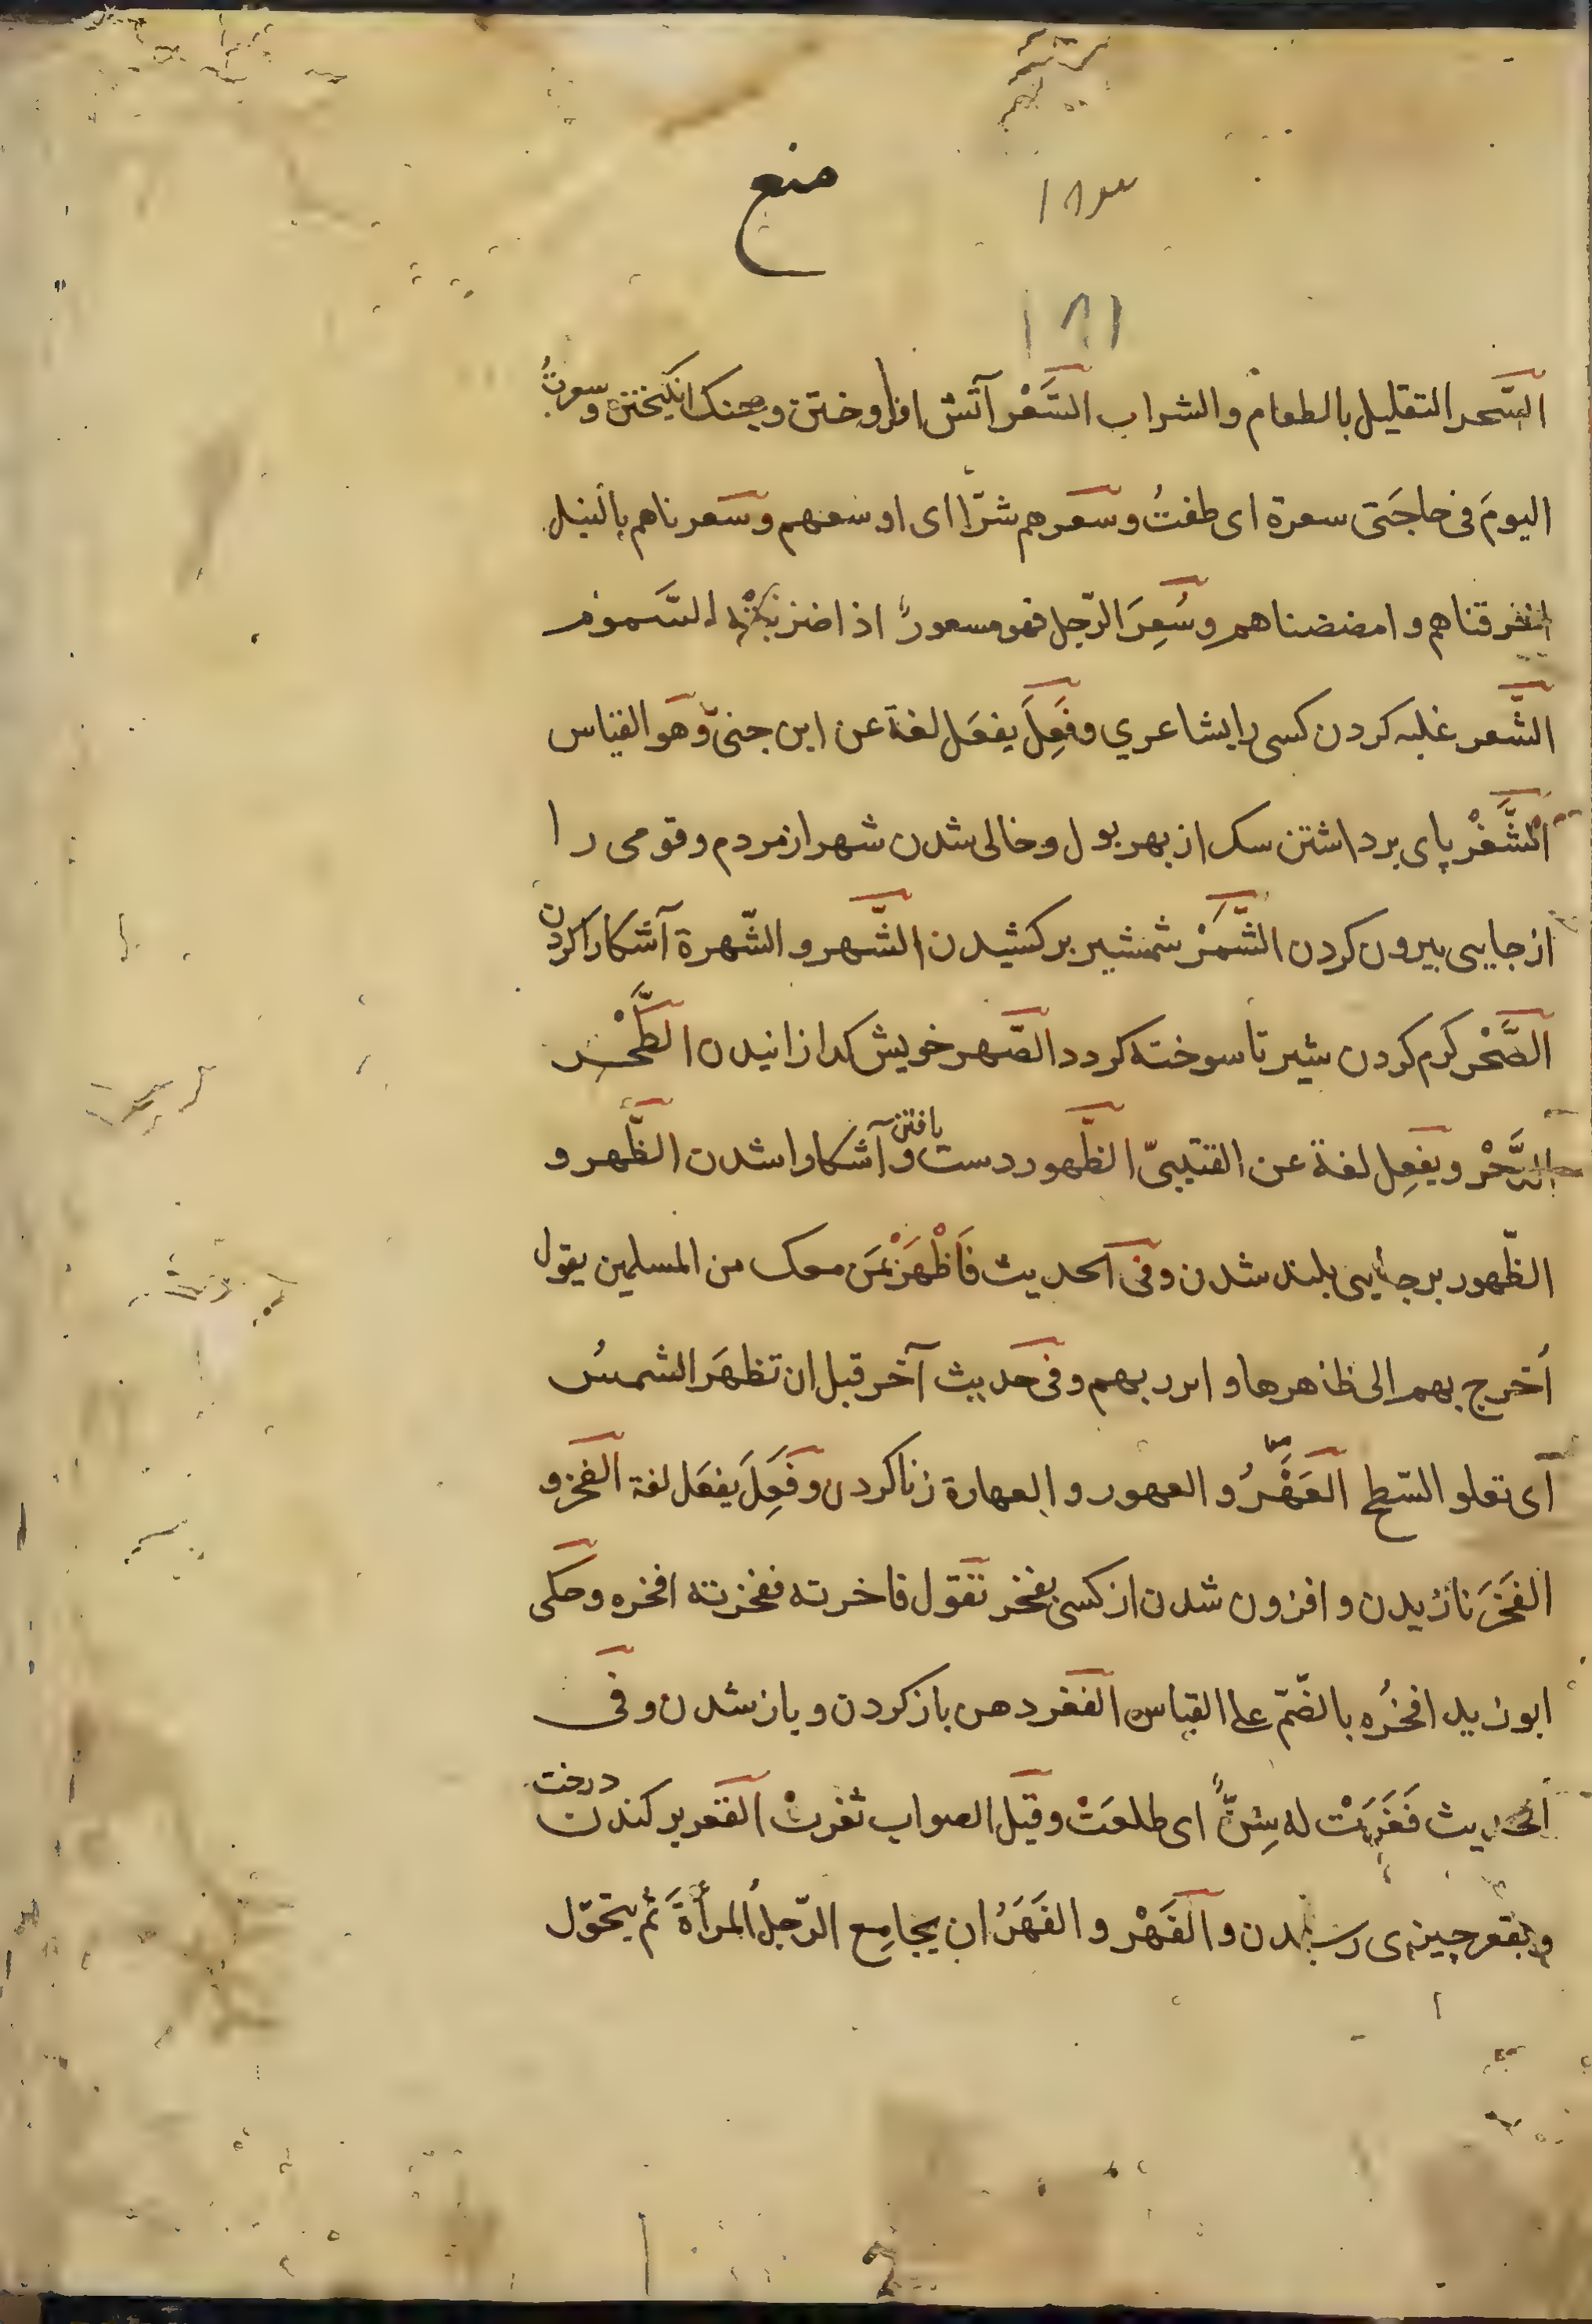 منع
۱۸۳
۱۸۱
السَّحر التقليل بالطعام والشراب السَّعْر آتش افراوختن وجنك انكيختن وسعرتُ
اليومَ فى حاجَتى سعرة اى طفتُ وسعرهم شرّا اى اوسعهم وسعرناهم بالنبل
احرقناهم وامضضناهم وسُعِرَ الرّجل فهو مسعورٌ اذا ضربته السَّموم
الشّعر غلبه كردن كسى را بشاعري وفَعِلَ يفعَل لغة عن ابن جنىّ وهو القياس
الشَّغْر پاى برداشتن سك از بهر بول وخالى شدن شهر از مردم وقومى را
از جايى بيرون كردن الشَّمْر شمشير بركشيدن الشَّهر و الشّهرة آشكارا كردن
الصَّحْر كرم كردن شير تا سوخته كردد الصَّهر خويش كدازانيدن الطَّحْر
الزَّحْر ويفعِل لغة عن القتيبىّ الظّهور دست يافتن وآشكارا شدن الظّهر و
الظّهور بر جائيى بلند شدن وفى الحديث فَاظْهَرْ بمَن معك من المسلمين يقول
أخرج بهم الى ظاهرها وابرد بهم وفى حديث آخر قبل ان تظهَر الشمسُ
اى تعلو السّطح العَهْرُ و العهور و العهارة زنا كردن وفَعِلَ يفعَل لغة الفخر و
الفَخَرَ نازيدن وافزون شدن از كسى بفخر تقول فاخرته ففخرته افخره وحكى
ابو زيد افخُره بالضّمّ على القياس الفغر دهن باز كردن وباز شدن وفى
الحديث فَغَرَتْ له سِنٌّ اى طلعَتْ وقيل الصواب ثغرتْ القعر بركندن درخت
وبقعر چيزى رسيدن و الفَهْر و الفَهَرُ ان يجامِع الرّجلُ المرأةَ ثم يتحوّل